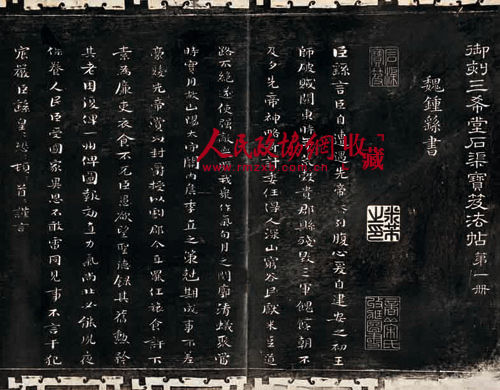 御刻三希堂石渠寶笈法帖第一冊
魏鍾繇書
臣繇言臣自遭遇先帝忝列腹心爰自建安之初王
師破賊關東時年荒穀貴郡縣殘毀三軍餽饟朝不
及夕先帝神略奇計委任得人深山窮谷民獻米豆道
路不絕遂使強敵喪膽我眾作氣旬月之間廓清蟻聚當
時實用故山陽太守關內侯季直之策剋期成事不差
豪髮先帝賞以封爵授以劇郡今直罷任旅食許下
素為廉吏衣食不充臣愚欲望聖德錄其舊勳矜
其老困復俾一州俾圖報效直力氣尚壯必能夙夜
保養人民臣受國家異恩不敢雷同見事不言干犯
宸嚴臣繇皇恐頓首謹言
石渠寶笈
人民政協網
收藏